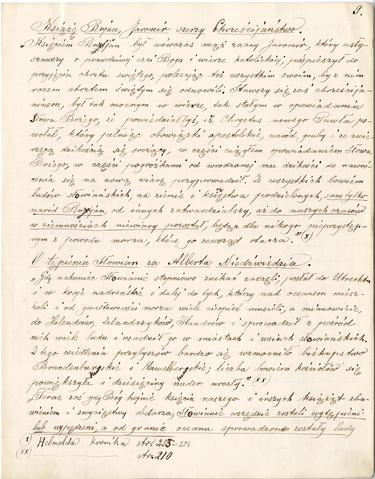 9.
Książę Rujan, Jaromir szerzy Chrześcijaństwo.
"Księciem Rujan był wówczas mąż zacny Jaromir, który usły-
szawszy o prawdziwej czci Boga i wierze katolickiej, pośpieszył do
przyjęcia chrztu świętego, polecając też wszystkim swoim, by z nim
razem chrztem świętym się odnowili. Stawszy się zaś chrześcija-
ninem, był tak mocnym w wierze, tak stałym w opowiadaniu
Słowa Bożego, iż powiedziałbyś, iż Chrystus nowego Pawła po-
wołał, który pełniąc obowiązki apostolskie, naród gruby i ze zwie-
rzęcą dzikością się srożący, w części ciągłem opowiadaniem Słowa
Bożego, w części pogróżkami od wrodzonej mu dzikości do nawróce-
nia się na nową wiarę przyprowadził. Ze wszystkich bowiem
ludów słowiańskich, na ziemie i księstwa podzielonych, sam tylko
naród Rujan, od innych zatwardzialszy, aż do naszych czasów
w ciemnościach niewiary pozostał, będąc dla nikogo nieprzystęp-
nym z powodu morza, które go zewsząd otacza." (x)
O tępieniu Słowian za Alberta Niedźwiedzia.
"Gdy nakoniec Słowianie stopniowo znikać zaczęli, posłał do Utrechtu
i w kraje nadreńskie i dalej do tych, którzy nad oceanem miesz-
kali i od gwałtowności morza wiele cierpieć musieli, a mianowicie,
do Holendrów, Zelandczyków, Flandrów i sprowadził z pośród
nich wiele ludu i osadził go w miastach i wsiach słowiańskich.
Z tego osiedlenia przybyszów bardzo się wzmocniło biskupstwo
Brandenburgskie i Hawelbergskie, liczba bowiem kościołów się
powiększyła i dziesięciny nader urosły." (xx)
"Teraz zaś gdy Bóg hojnie księcia naszego i innych książąt zba-
wieniem i zwycięstwy obdarzył, Słowianie wszędzie zostali wytępieni
lub wypędzeni, a od granic oceanu sprowadzone zostały ludy
(x) Helmolda kronika str. 223-224
(xx) str. 210